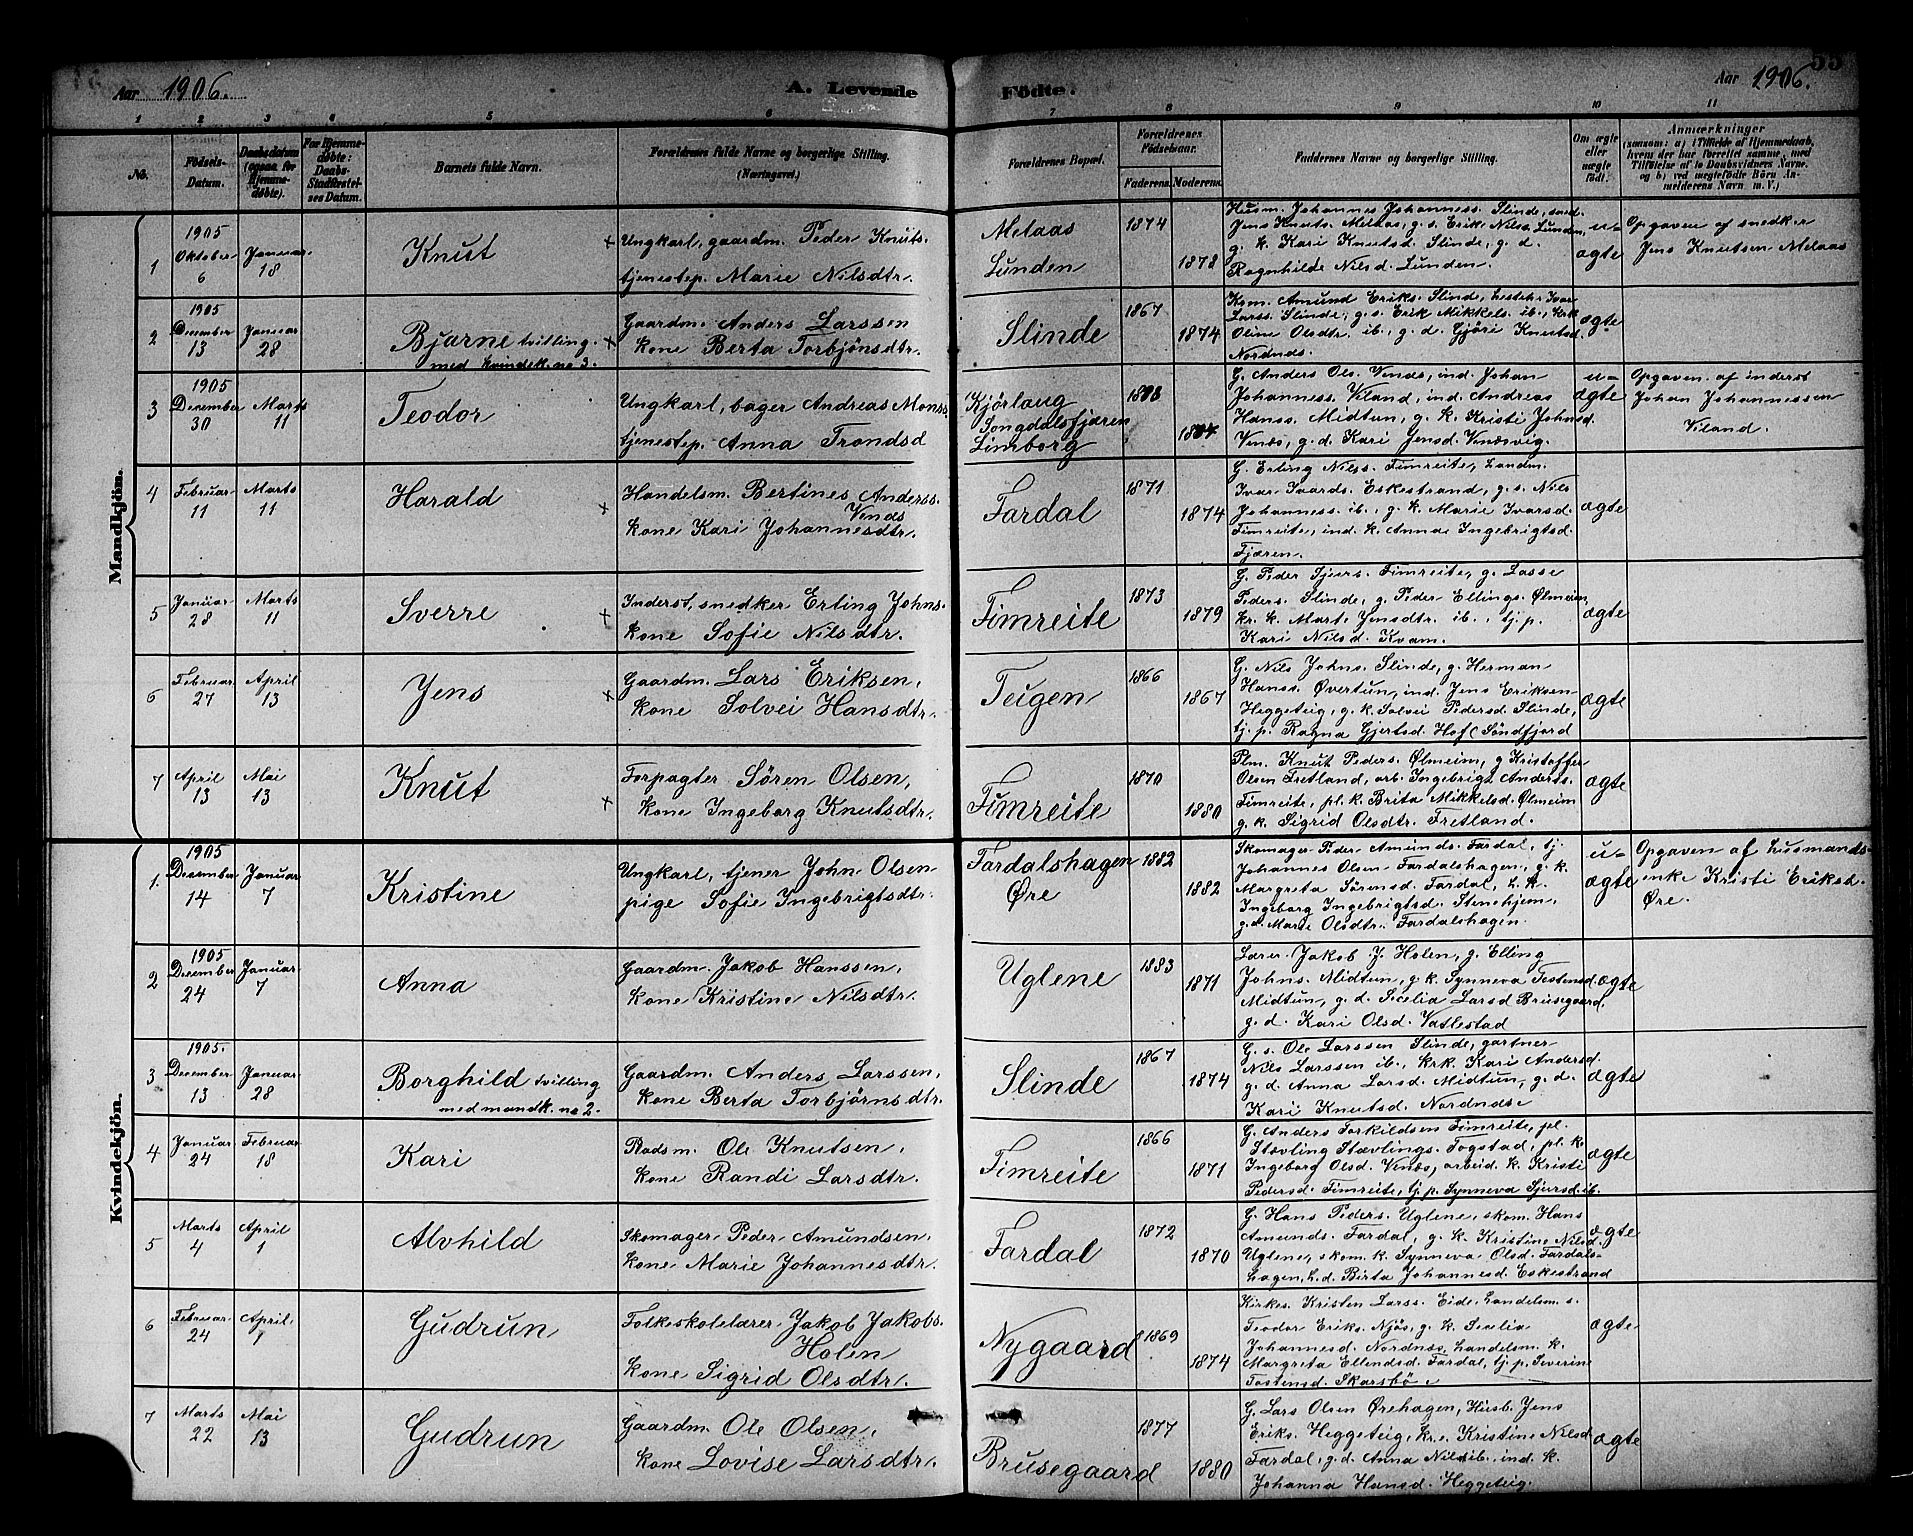 Aar 1906.
A. Levende
Födte.
Aar 1906.
55
1 2 3 4 5 6 7 8 9 10 11
No.
Födsels-
Datum.
Daabsdatum
(ogsaa for
Hjemme-
døbte).
For Hjemme-
døbte:
Daabs-
Stadfæstel-
ses Datum.
Barnets fulde Navn.
Forældrenes fulde Navne og borgerlige Stilling.
(Næringsvei.)
Forældrenes Bopæl.
Forældrenes
Fødselsaar.
Faderens. Moderens.
Faddernes Navne og borgerlige Stilling.
Om ægte
eller
uægte
født.
Anmærkninger
(saasom: a) i Tilfælde af Hjemmedaab,
hvem der har forrettet samme, med
Tilföielse af to Daabsvidners Navne,
og b) ved uægtefödte Börn An-
melderens Navn m. V.)
Mandkjön.
1
1905
Oktober
6
Januar
18
Knut
Ungkarl, gaardm. Peder Knuts.
tjenestep. Marie Nilsdtr.
Melaas
Lunden
1874
1878
Husm. Johannes Johanness. Slinde, sned.
Jens Knuts. Melaas, g. s. Erik Nils. Lunden,
g. k. Kari Knutsd. Slinde, g. d.
Ragnhilde Nilsd. Lunden.
u-
ægte
Opgaven af snedker
Jens Knutsen Melaas
2
1905
December
13
Januar
28
Bjarne tvilling.
med kvindek. no 3.
Gaardm. Anders Larssen
kone Berta Torbjönsdtr.
Slinde
1867
1874
Kom. Amund Eriks. Slind, hesteh. Ivar
Larss. Slinde, g. s. Erik Mikkels. ib., krk.
Oline Olsdtr. ib., g. d. Gjöri Knutsd.
Nordnæs.
ægte
3
1905
December
30
Marts
11
Teodor
Ungkarl, bager Andreas Monss.
tjenestep. Anna Trondsd
Kjörlaug
Songdalsfjæren
Limborg
G. Anders Ols. Venæs, ind. Johan
Johanness. Viland, ind. Andreas
Hanss. Midtun, g. k. Kristi Johnsd.
Venæs, g. d. Kari Jensd. Venæsvig.
u-
ægte
Opgaven af inderst
Johan Johannessen
Viland.
4
Februar
11
Marts
11
Harald
Handelsm. Bertines Anderss.
Venæs
kone Kari Johannesdtr.
Fardal
1871
1874
G. Erling Nils. Fimreite, handm.
Ivar Ivards. Eskestrand, g. s. Nils
Johanness. ib., g. k. Marie Ivarsd.
Fimreite, ind. k. Anna Ingebrigtsd.
Fjæren.
ægte
5
Januar
28
Marts
11
Sverre
Inderst, snedker Erling Johns.
kone Sofie Nilsdtr.
Fimreite
1873
1879
G. Peder Sjurs. Fimreite, g. Lasse
Peders. Slinde, g. Peder Ellings. Ølmeim,
kr. k. Marte Jensdtr. ib., tj. p.
Kari Nilsd. Kvam.
ægte
6
Februar
27
April
13
Jens
Gaardm. Lars Eriksen,
kone Solvei Hansdtr.
Teigen
1866
1867
G. Nils Johns. Slinde, g. Herman
Hanss. Øvertun, ind. Jens Eriksen
Heggeteig, g. k. Solvei Pedersd. Slinde,
tj. p. Ragna Gjertsd. Hof (Söndfjord
ægte
7
April
13
Mai
13
Knut
Forpagter Sören Olsen,
kone Ingeborg Knutsdtr.
Fimreite
1870
1880
Plm. Knut Peders. Ølmeim, g. Kristoffer
Olsen Fretland, arb. Ingebrigt Anderts.
Fimreite, pl. k. Brita Mikkelsd. Ølmeim
g. k. Sigrid Olsdtr. Fretland.
ægte
Kvindekjön.
1.
1905
Desember
14
Januar
7
Kristine
Ungkarl, tjener John Olsen
pige Sofie Ingebrigtsdtr.
Fardalshagen
Øre
1882
1882
Skomager Peder Amunds. Fardal, tj.
Johannes Olsen Fardalshagen, g. k.
Margreta Sörensd. Fardal, h. k.
Ingeborg Ingebrigtsd. Stenehjem,
g. d. Marie Olsdtr. Fardalshagen.
u-
ægte
Opgaven af husmands-
enke Kristi Eriksd.
Øre.
2
1905
December
24
Januar
7
Anna
Gaardm. Jakob Hanssen,
kone Kristine Nilsdtr.
Uglene
1883
1871
Lærer Jakob J. Holen, g. Elling
Johns. Midtun, g. k. Synneva Tostensd.
Midtun, g. d. Secelia Larsd Brusegaard,
g. d. Kari Olsd. Vatlestad
ægte
3
1905.
December
13
Januar
28
Borghild tvilling
med mandk. no 2.
Gaardm. Anders Larssen,
kone Berta Torbjörnsdtr.
Slinde
1867
1874
G. s. Ole Larssen Slinde, gartner
Nils Larssen ib., krk. Kari Andersd.
g. d. Anna Larsd. Midtun, g. d.
Kari Knutsd. Nordnæs
ægte
4
Januar
24
Februar
18
Kari
Pladsm. Ole Knutsen,
kone Randi Larsdtr.
Fimreite
1866
1871
G. Anders Torkildsen Fimreite, pl.
Stævling Stævlings. Togstad, pl. k.
Ingeborg Olsd. Venæs, arbeid. k. Kristi
Pedersd. Fimreite, tj. p. Synneva Sjursd. ib.
ægte
5
Marts
4
April
1
Alvhild
Skomager Peder Amundsen,
kone Marie Johannesdtr.
Fardal
1872
1870
G. Hans Peders. Uglene, skom. Hans
Amunds. Fardal, g. k. Kristine Nilsd.
Uglene, skom. k. Synneva Olsd. Fardals-
hagen, h. d. Birta Johannesd. Eskestrand
ægte
6
Februar
24
April
1
Gudrun
Folkeskolelærer Jakob Jakobs.
Holen
kone Sigrid Olsdtr.
Nygaard
1869
1874
Kirkes. Kristen Larss. Eide, handelsm. s.
Teodor Eriks. Njös, g. k. Secelia
Johannesd. Nordnæs, handelsm. k.
Margreta Ellendsd. Fardal, tj. p. Severine
Tostensd. Skarsbö.
ægte
7
Marts
22
Mai
13
Gudrun
Gaardm. Ole Olsen,
kone Lovise Larsdtr.
Brusegaard
1877
1880
G. Lars Olsen Ørehagen, Husb. Jens
Eriks. Heggeteig, kr. e. Kristine Nilsd
Fardal, g. d. Anna Nilsd ib. ind. k.
Johanna Hansd. Heggeteig.
ægte